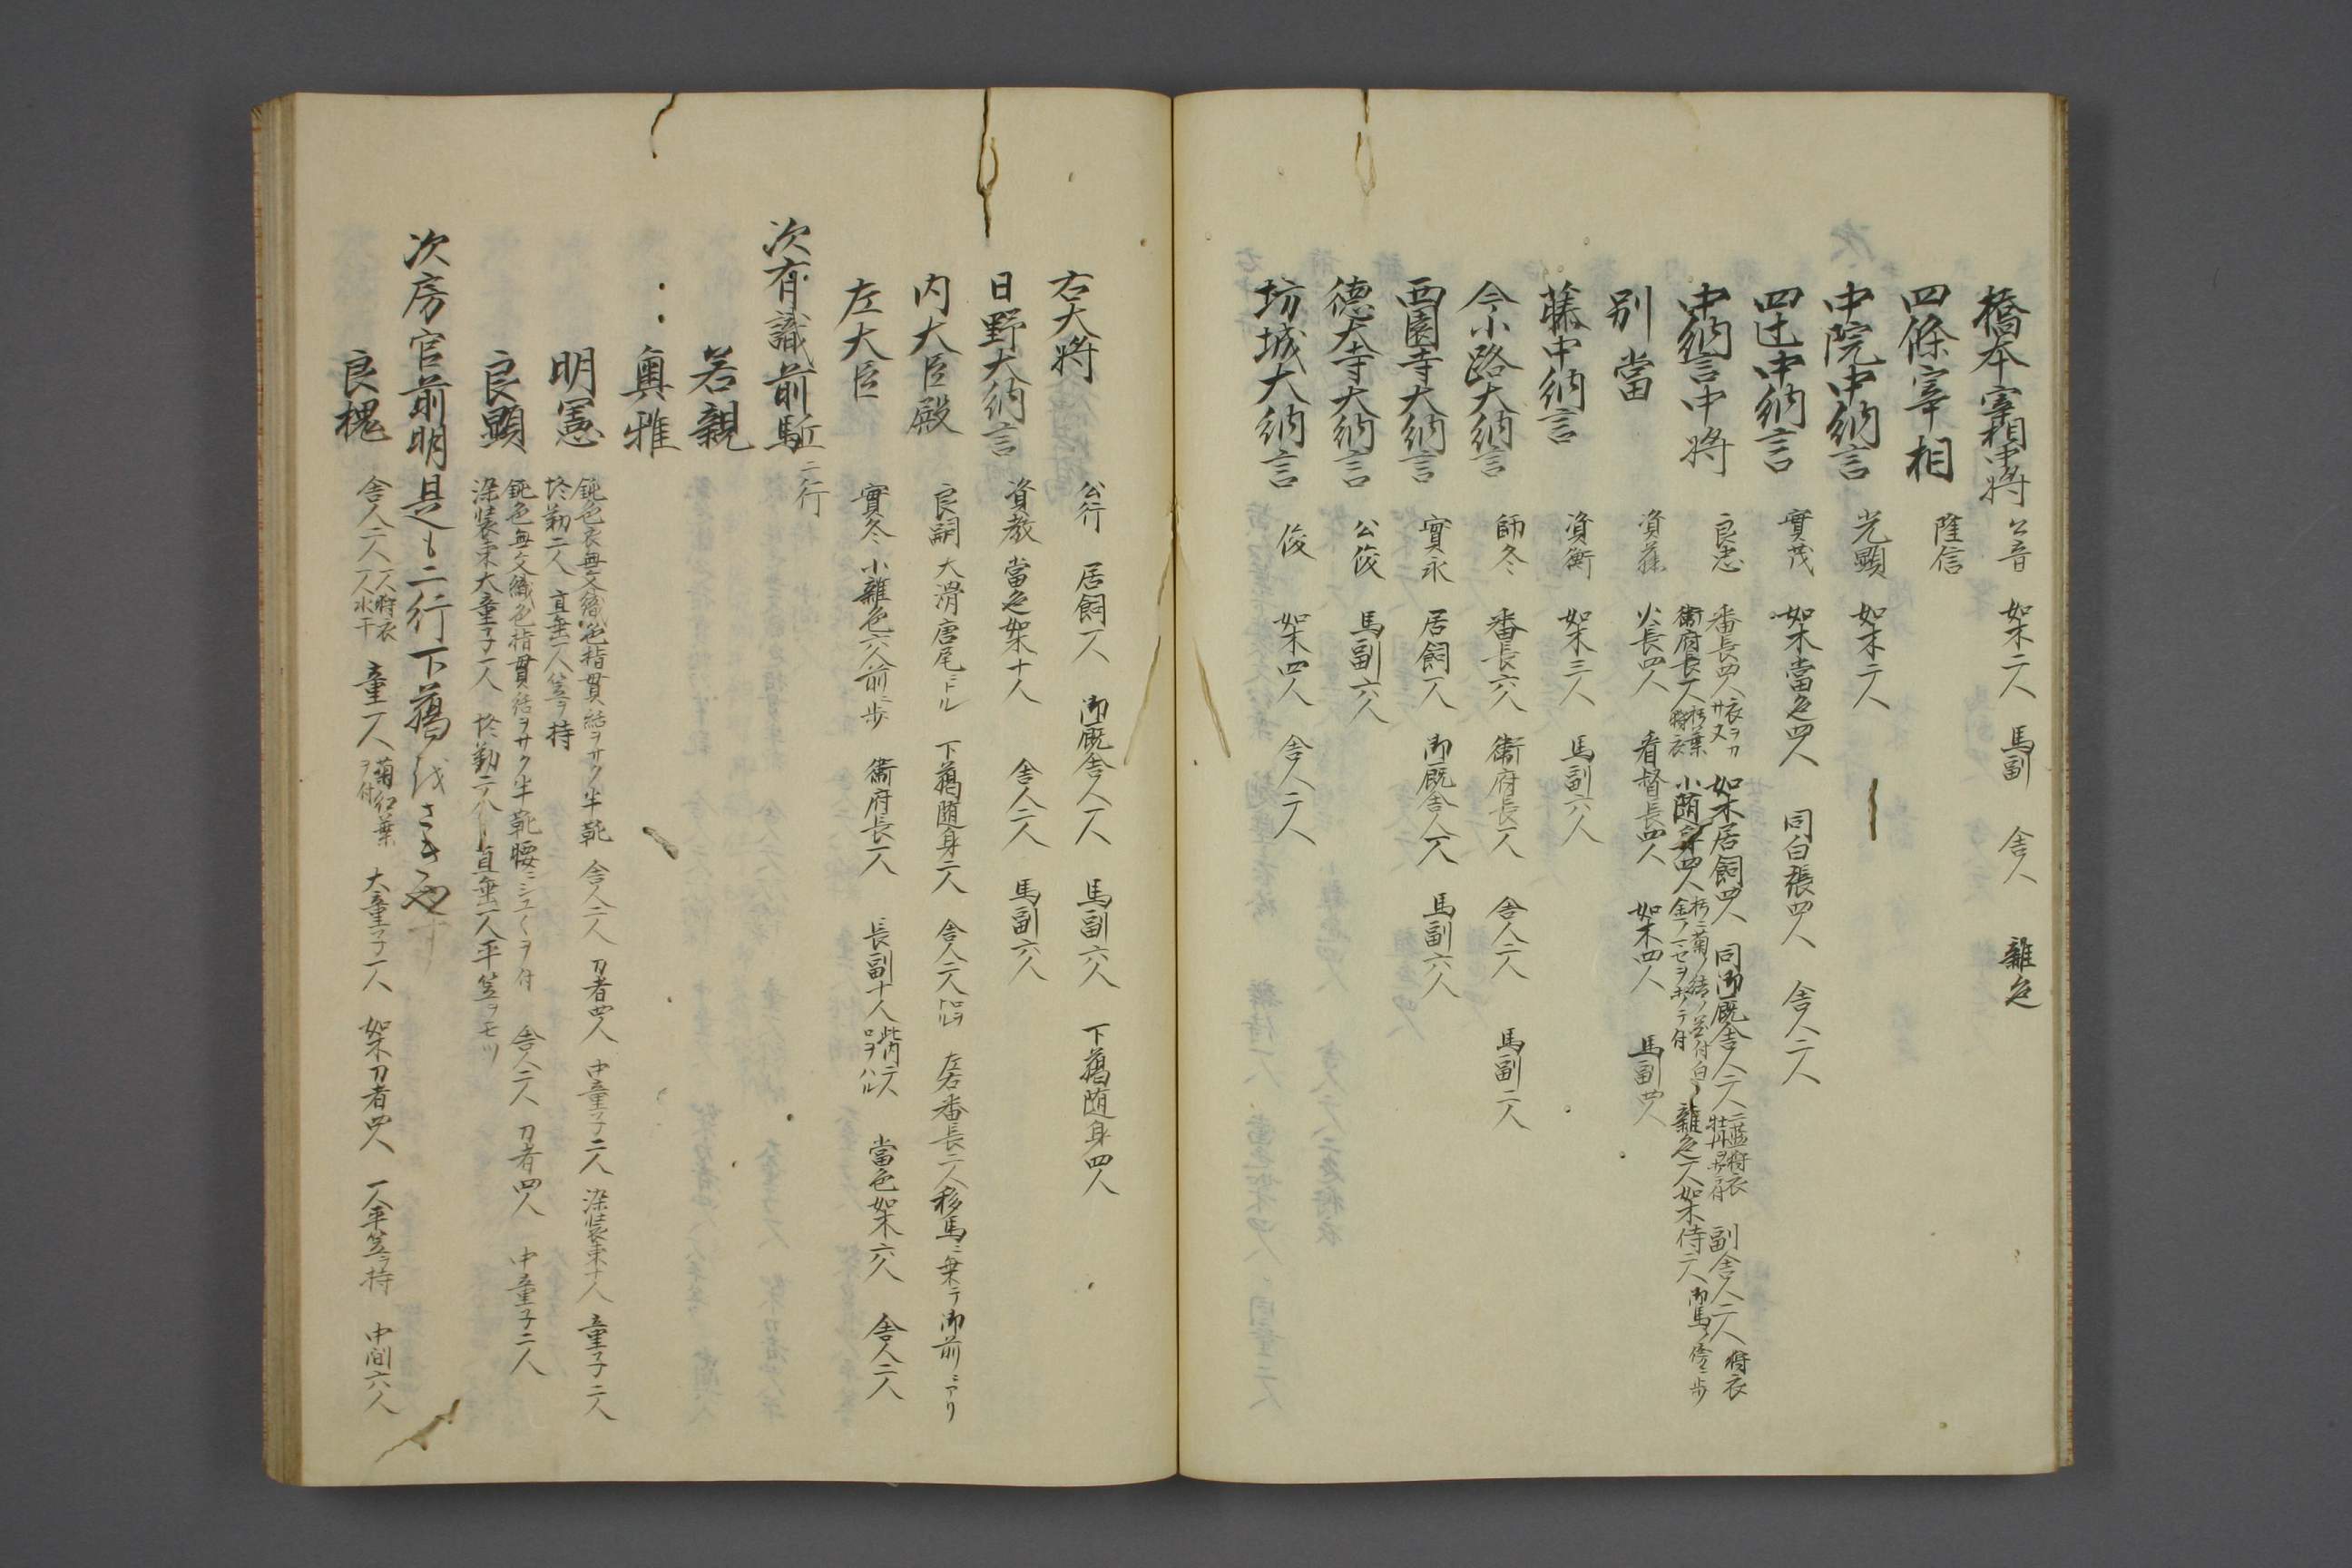 橋本宰相中将 公音 如木二人 馬副 舎人 雜色
四條宰相 隆信
中院中納言 光顯 如木二人
四辻中納言 實茂 如木當色四人 同白張四人 舎人二人
中納言中将 良忠 番長四人 如木居飼四人 同御厩舎人二人 二藍狩衣 副舎人二人 狩衣
衛府長一人 狩衣 小随身四人 雜色一人 如木侍二人 御馬ノ傍ニ歩
別當 資藤 火長四人 看督長四人 如木四人 馬副四人
藤中納言 資衡 如木三人 馬副六人
今小路大納言 師冬 番長六人 衛府長一人 舎人二人 馬副二人
西園寺大納言 實永 居飼一人 御厩舎人一人 馬副六人
德大寺大納言 公俊 馬副六人
坊城大納言 俊 如木四人 舎人二人
右大将 公行 居飼一人 御厩舎人一人 馬副六人 下﨟随身四人
日野大納言 資教 當色如木十人 舎人二人 馬副六人
内大臣殿 良嗣 大滑唐尾ニトル 下﨟随身二人 舎人二人 左右番長二人移馬ニ乗テ御前ニアリ
左大臣 實冬 小雜色六人前ニ歩 衛府長一人 長副十人 當色如木六人 舎人二人
次有識前駈 二行
若親
奥雅
明憲 鈍色衣無文織色指貫結ヲサク半靴 舎人二人 刀者四人 中童子二人 染裝束十人 童子二人
二人 直垂一人笠ヲ持
良顯 鈍色無文織色指貫結ヲサク半靴腰ニシユクヲ付 舎人二人 刀者四人 中童子二人
染裝束大童子一人 二人 直垂一人平笠ヲモツ
次房官前明是も二行下﨟
良槐 舎人二人 一人狩衣 一人水干 童一人 菊紅葉ヲ付 大童子一人 如木刀者四人 一人平笠ヲ持 中間六人